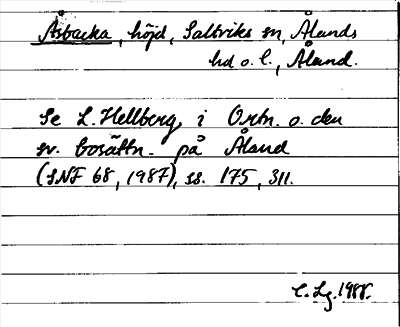 Åsbacka, höjd, Saltviks sn, Ålands
hd o. l., Åland.
Se L. Hellberg, i Ortn. o. den
sv. bosättn. på Åland
(SNF 68, 1987), ss. 175, 311.
C. Lg. 1988.